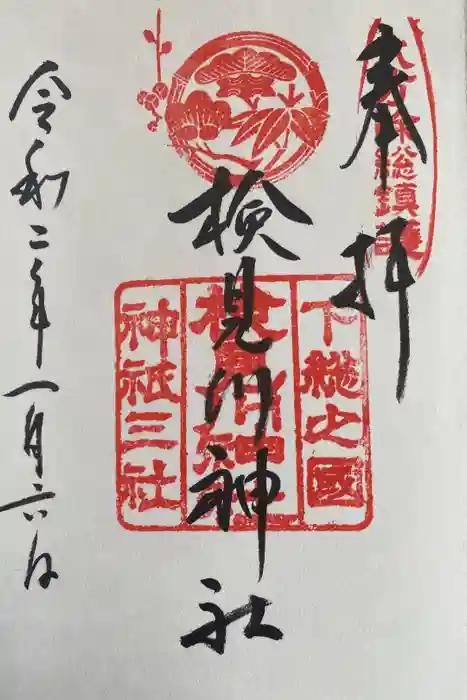 奉拝
八方除総鎮護
下総之國
検見川神社
神祇三社
検見川神社
令和二年一月六日